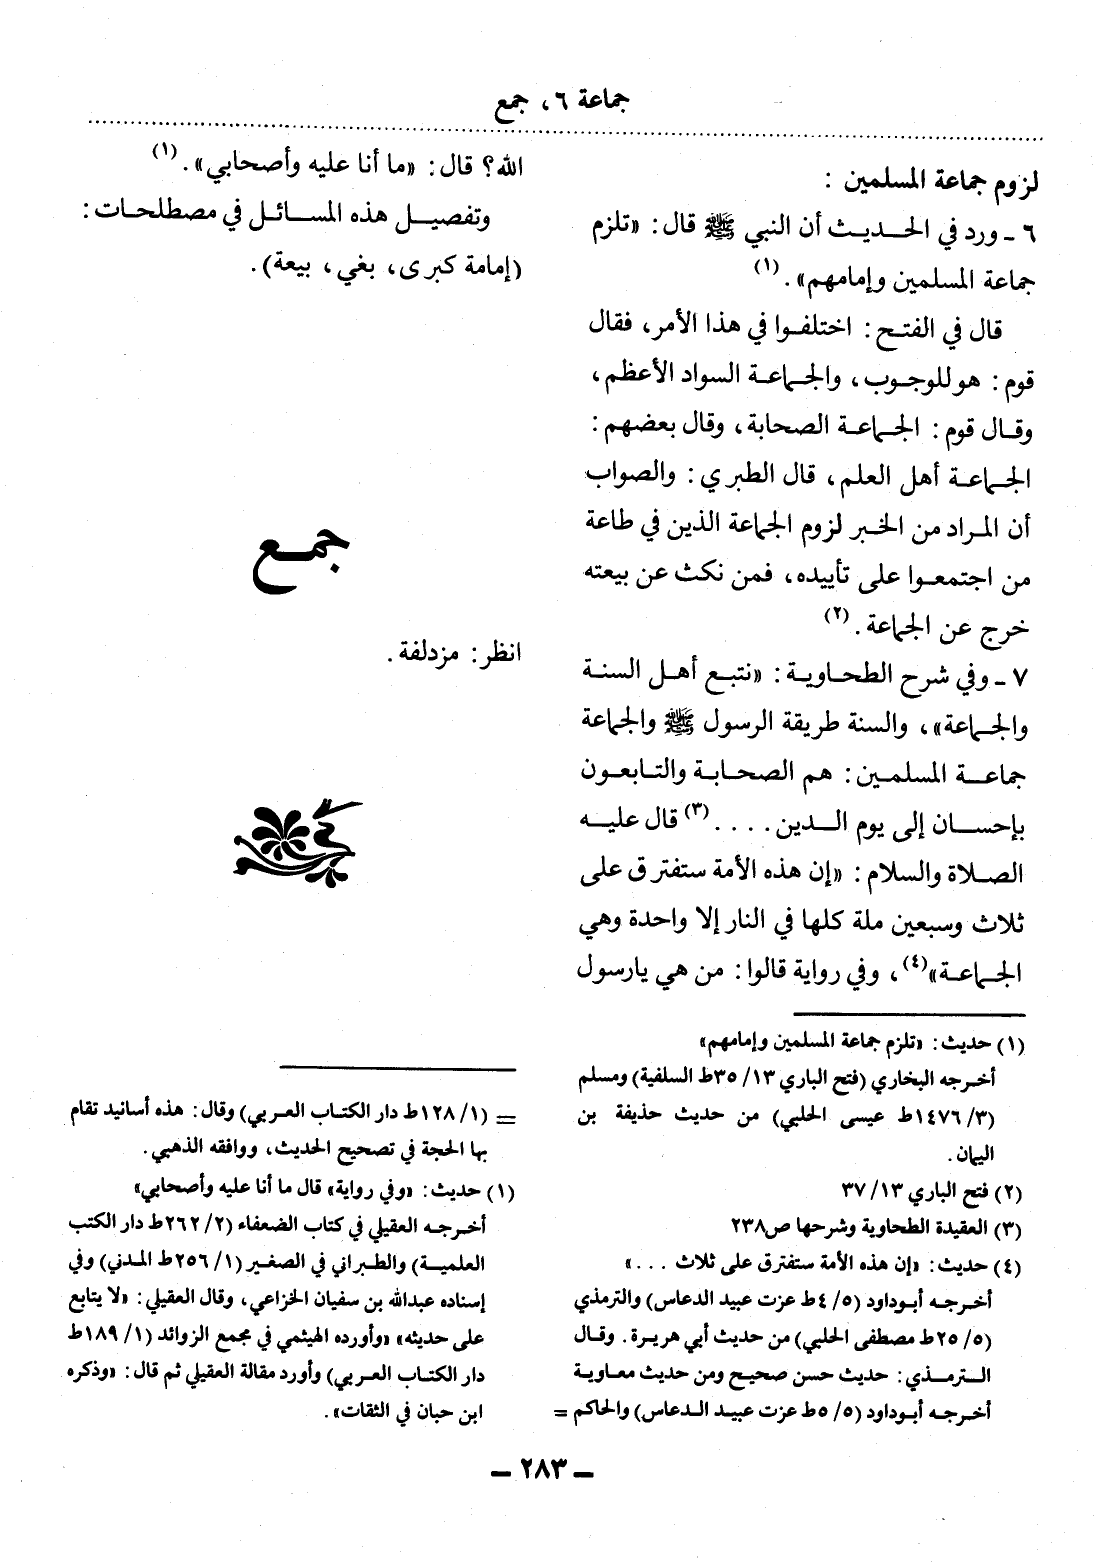 جماعة ٦، جمع
لزوم جماعة المسلمين :
٦ ـ ورد في الحديث أن النبي ﷺ قال : «تلزم
جماعة المسلمين وإمامهم» . (١)
قال في الفتح : اختلفوا في هذا الأمر، فقال
قوم : هو للوجوب، والجماعة السواد الأعظم،
وقال قوم : الجماعة الصحابة، وقال بعضهم :
الجماعة أهل العلم، قال الطبري : والصواب
أن المراد من الخبر لزوم الجماعة الذين في طاعة
من اجتمعوا على تأييده، فمن نكث عن بيعته
خرج عن الجماعة . (٢)
٧ ـ وفي شرح الطحاوية : «نتبع أهل السنة
والجماعة»، والسنة طريقة الرسول ﷺ والجماعة
جماعة المسلمين : هم الصحابة والتابعون
بإحسان إلى يوم الدين . . . . (٣) قال عليه
الصلاة والسلام : «إن هذه الأمة ستفترق على
ثلاث وسبعين ملة كلها في النار إلا واحدة وهي
الجماعة» (٤)، وفي رواية قالوا : من هي يارسول
(١) حديث : «تلزم جماعة المسلمين وإمامهم»
أخرجه البخاري (فتح الباري ١٣/ ٣٥ط السلفية) ومسلم
(٣/ ١٤٧٦ط عيسى الحلبي) من حديث حذيفة بن
اليمان .
(٢) فتح الباري ١٣/ ٣٧
(٣) العقيدة الطحاوية وشرحها ص٢٣٨
(٤) حديث : «إن هذه الأمة ستفترق على ثلاث . . . »
أخرجه أبوداود (٥/ ٤ط عزت عبيد الدعاس) والترمذي
(٥/ ٢٥ط مصطفى الحلبي) من حديث أبي هريرة . وقال
الترمذي : حديث حسن صحيح ومن حديث معاوية
أخرجه أبوداود (٥/ ٥ط عزت عبيد الدعاس) والحاكم =
الله؟ قال : «ما أنا عليه وأصحابي» . (١)
وتفصيل هذه المسائل في مصطلحات :
(إمامة كبرى، بغي، بيعة) .
جمع
انظر : مزدلفة .
= (١/ ١٢٨ط دار الكتاب العربي) وقال : هذه أسانيد تقام
بها الحجة في تصحيح الحديث، ووافقه الذهبي .
(١) حديث : «وفي رواية» قال ما أنا عليه وأصحابي»
أخرجه العقيلي في كتاب الضعفاء (٢/ ٢٦٢ط دار الكتب
العلمية) والطبراني في الصغير (١/ ٢٥٦ط المدني) وفي
إسناده عبدالله بن سفيان الخزاعي، وقال العقيلي : «لا يتابع
على حديثه» «وأورده الهيثمي في مجمع الزوائد (١/ ١٨٩ط
دار الكتاب العربي) وأورد مقالة العقيلي ثم قال : «وذكره
ابن حبان في الثقات» .
ـ ٢٨٣ ـ